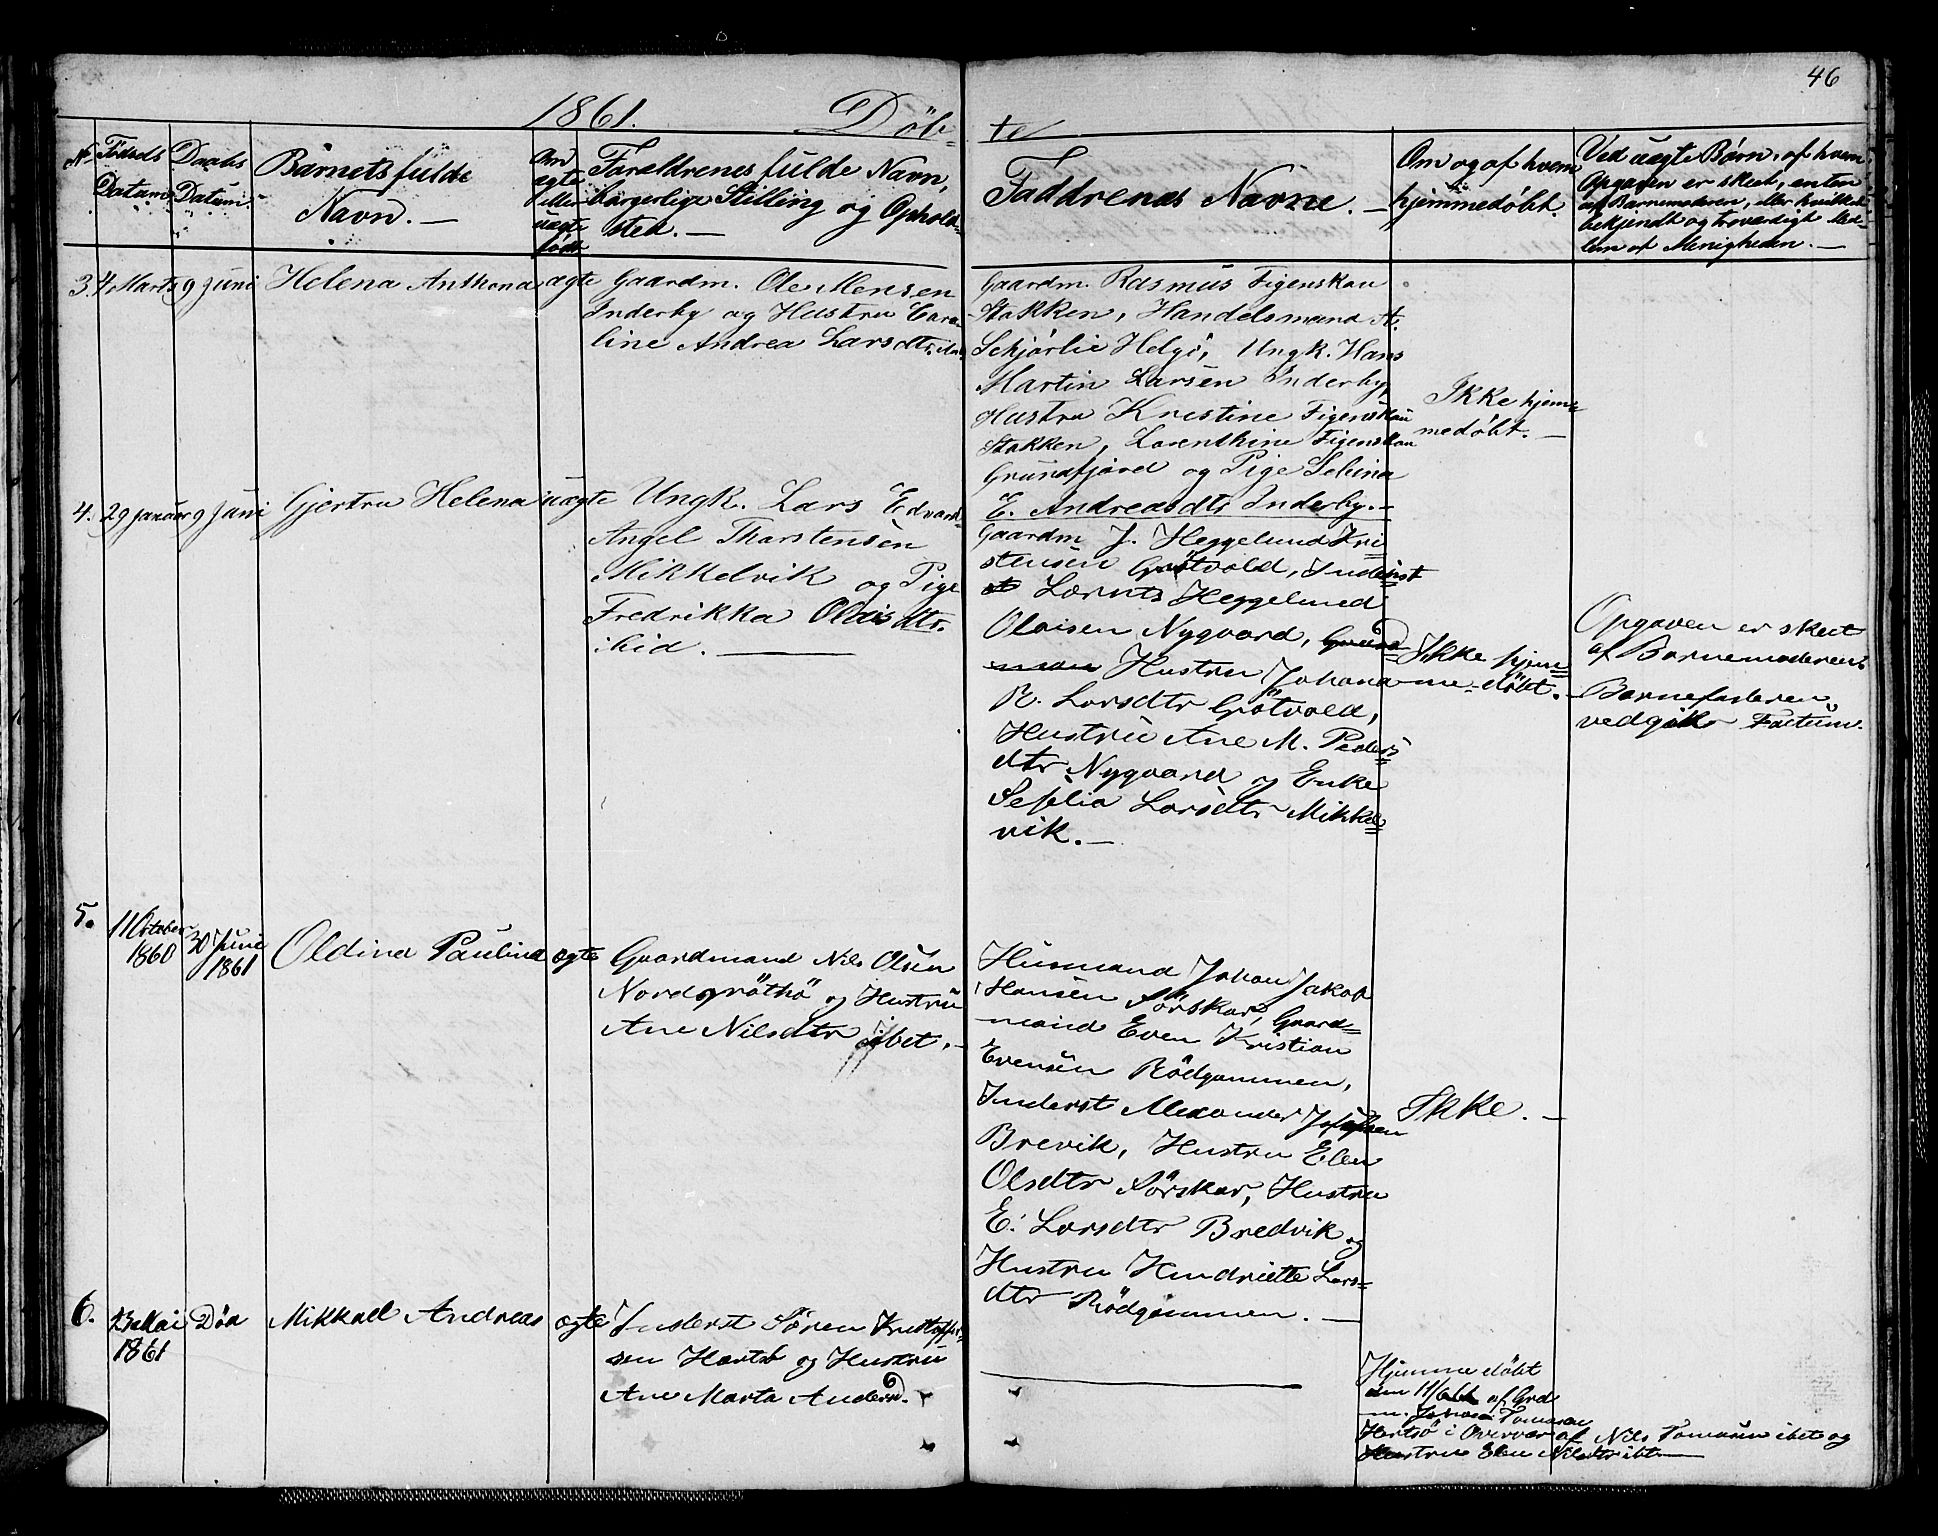 46
1861. Døb-
te
N. Fødsels Datum.
Daabs Datum.
Barnets fulde
Navn. —
Om ægte eller uægte født
Forældrenes fulde Navn,
borgerlige Stilling og Opholds-
sted. —
Faddrenes Navne. —
Om og af hvem
hjemmedøbt.
Ved uægte Børn, af hvem
Opgaven er skeet, enten
af Barnemoderen, eller hvilket
bekjendt og troværdigt Med-
lem af Menigheden. —
3. 4 Marts 9 Juni Helena Anthona ægte
Gaardm. Ole Monsen
Inderby og Hustru Caro-
line Andrea Larsdtr.
Gaardm. Rasmus Figenskau
Stakken, Handelsmand A.
Schjørlie Helgö, Ungk. Hans
Martin Larsen Inderby
Hustru Kristine Figenskau
Stakken, Lorenthine Figenskau
Grundfjord og Pige
E. Andreasdtr Inderby. —
Ikke hjem-
medöbt. —
4. 29 januar 9 Juni Gjertru Helena uægte
Ungk. Lars Edvard
Angel Thorstensen
Mikkelvik og Pige
Fredrikka Olaisdtr.
ibid. —
Gaardm J. Heggelund Kri-
stensen Grötvold, Inderst
Lornts Heggelund
Olaisen Nygaard,
Hustru Johana
R. Larsdtr Grötvold,
Hustru Ane M. Peders-
dtr Nygaard og Enke
Sesselia Larsdtr Mikkel-
vik. —
Ikke hjem-
me-döbt. —
Opgaven er skeet
af Barnemoderen.
Barnefaderen
vedgik Factum.
5. 11 October 1860
30 Juni 1861
Oldina Paulina ægte
Gaardmand Nils Olsen
Nordgröthö og Hustru
Ane Nilsdtr ibet. —
Husmand Johan Jakob
Hansen Sörskar, Gaard-
mand Even Kristian
Evensen Rödgammen,
Inderst Alexander Josefsen
Brevik, Hustru Elen
Olsdtr Sörskar, Hustru
E. Larsdtr Bredvik og
Hustru Hendriette Lars-
dtr Rödgammen. —
Ikke. —
6. 23 Mai 1861
Död
Mikkael Andreas ægte
Inderst Sören Kristoffer-
sen Hartsö og Hustru
Ane Marta Andersd.
Hjemme döbt
den 11/6 61 af Grd
m. Johan Tomasen
Hertsö i Overvær af Nils Tomasen ibet og
Hustru Elen Nilsdtr ibt. —